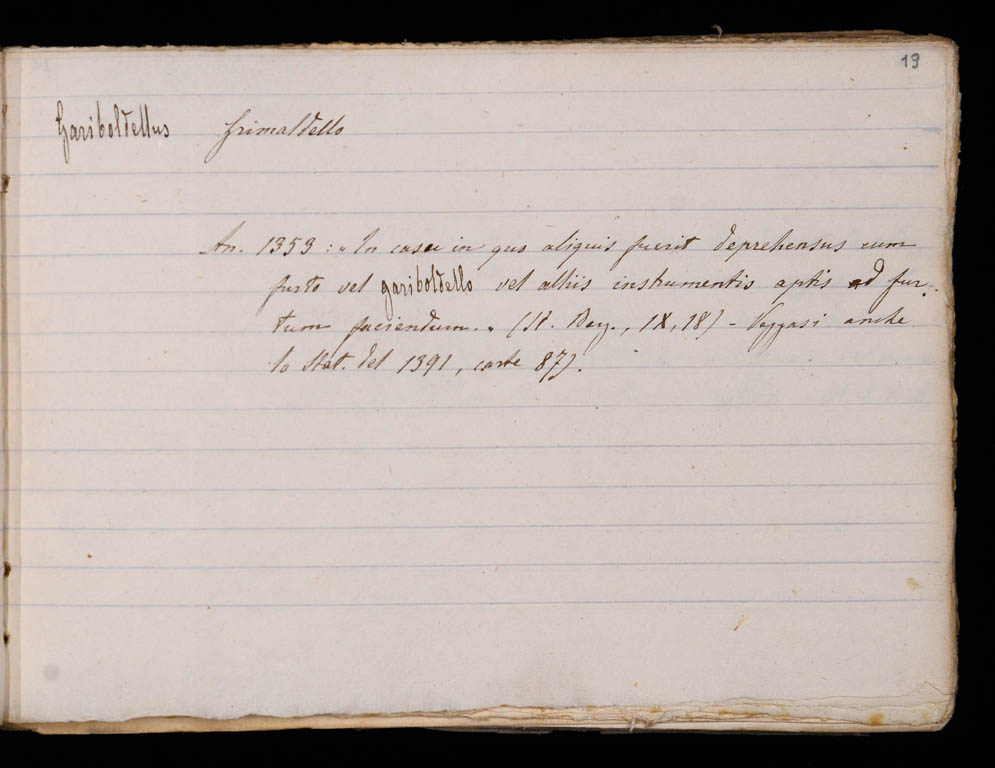 19
Gariboldellus Grimaldello
An. 1353: « In casu in quo aliquis fuerit deprehensus cum
furto vel gariboldello vel alliis instrumentis aptis ad fur-
tum faciendum. » (St. Berg., IX, 18) - Veggasi anche
lo Stat. del 1391, carte 87).